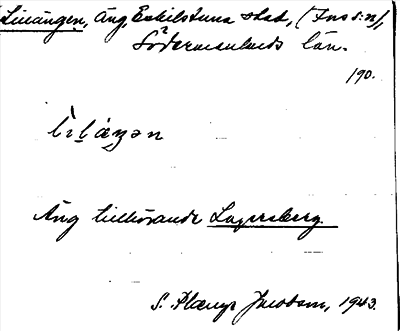 Liängen, Äng, Eskilstuna stad, (Fors s:n),
Södermanlands län.
190.
Äng tillhörande Lagersberg.
S. Plænge Jacobson, 1943.